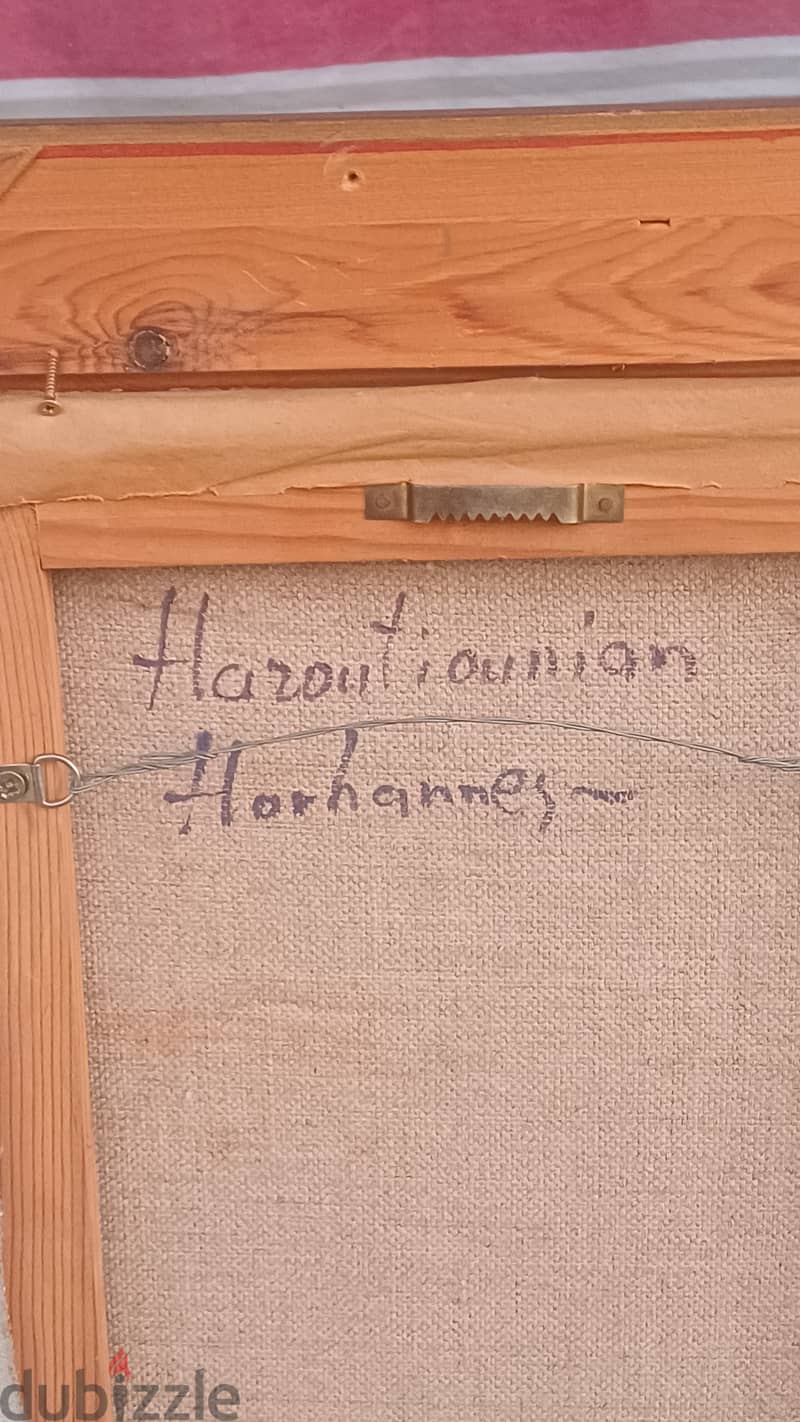 Haroutiounian
Horhannes
dubizzle